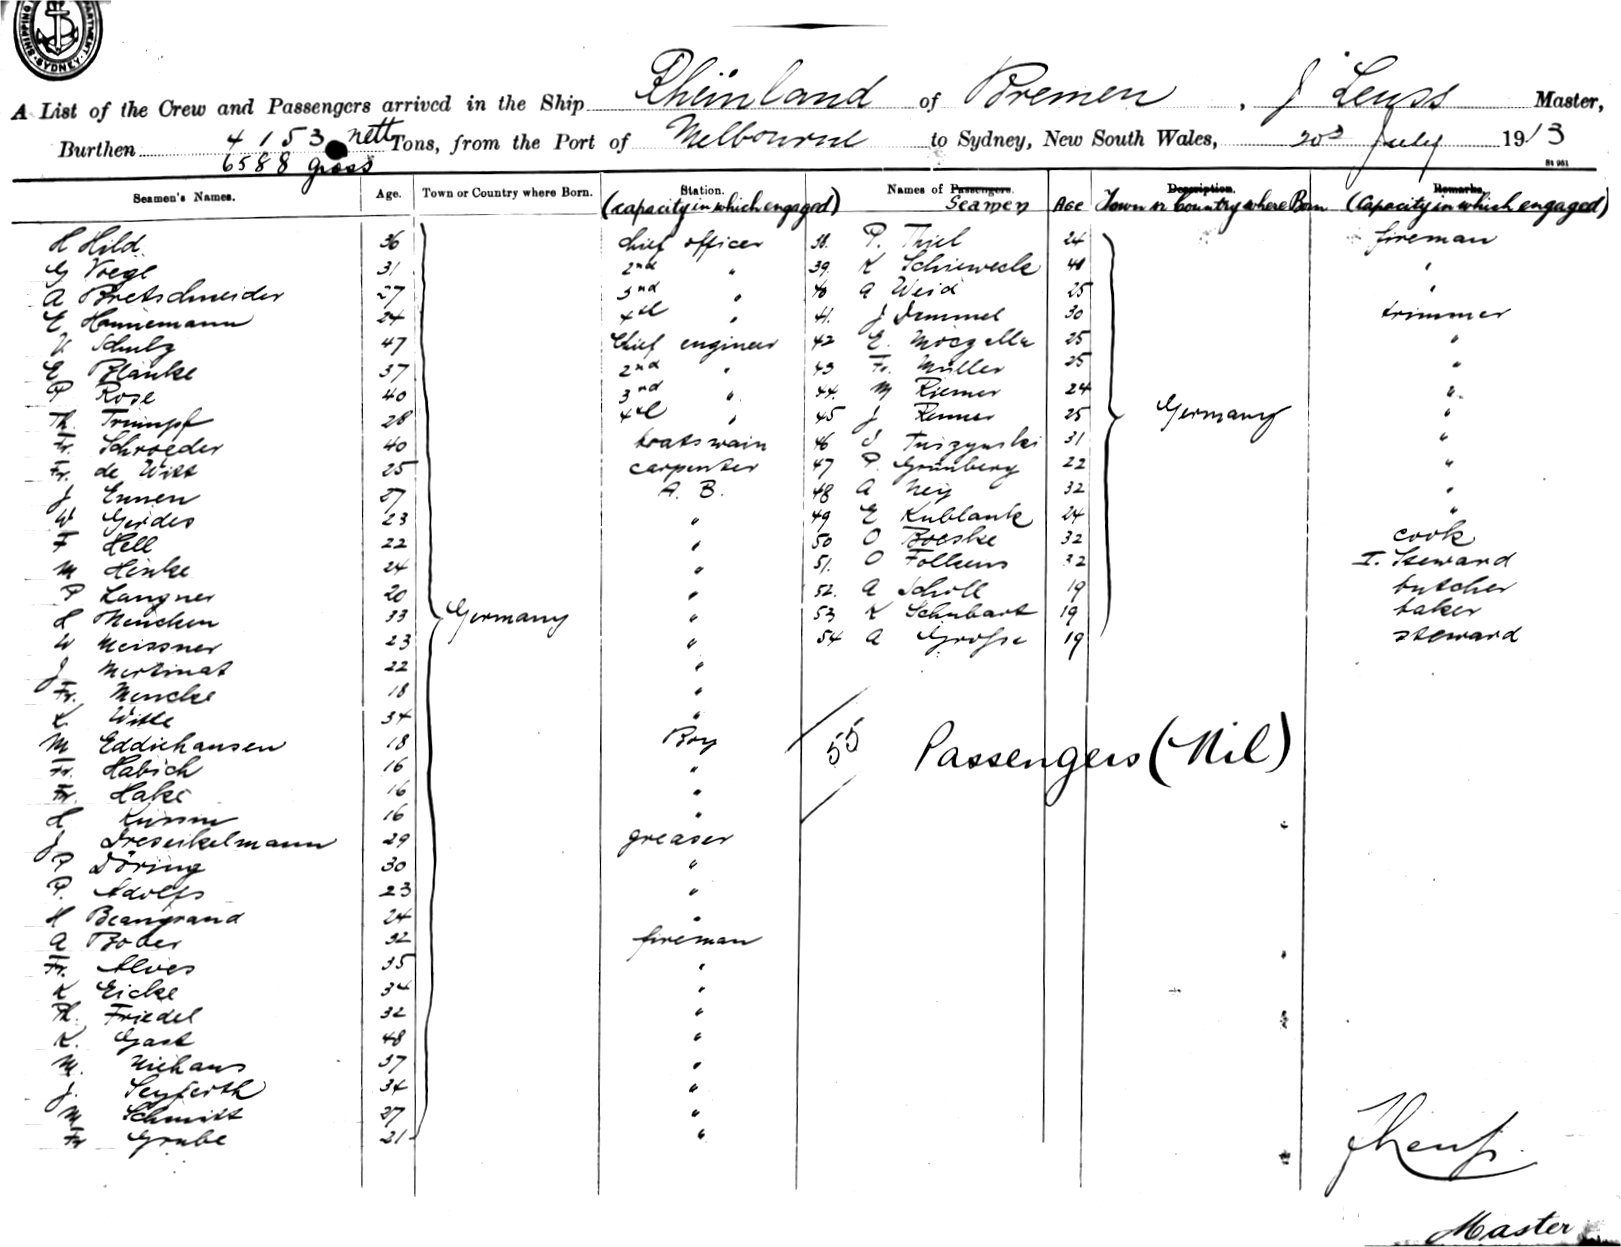 SHIPPING DEPARTMENT SYDNEY
A List of the Crew and Passengers arrived in the Ship Rheinland of Bremen, J Leuss Master,
Burthen 4153 nett Tons, from the Port of Melbourne to Sydney, New South Wales, 20d July 1913
6588 gross
St 951
Seamen's Names. Age. Town or Country where Born. Station. Names of Passengers. Description. Remarks.
(capacity in which engaged) Seamen Age Town or Country where Born (Capacity in which engaged)
H Hild 36 chief officer 38. P. Thiel 24 fireman
G Voege 31 2nd " 39. K Schieweck 41 "
A Bretschneider 27 3rd " 40 A Weid 25 "
E Hannemann 24 4th " 41. J Demmel 30 trimmer
Schulz 47 Chief engineer 42 E. Moczalla 25 "
E Blanke 37 2nd " 43 Fr. Müller 25 "
P Rose 40 3rd " 44. M Riemer 24 "
Th. Triumpf 28 4th " 45 J Renner 25 Germany "
Fr. Schroeder 40 boatswain 46 Tuszynski 31 "
Fr. de Witt 25 carpenter 47 P. Grünberg 22 "
J Ennen 27 A. B. 48 A Ney 32 "
W Gerdes 23 " 49 E Kublank 24 "
F Hell 22 " 50 O Boeske 32 cook
M Hinke 24 " 51. O Folkens 32 I. Steward
P Langner 20 " 52. A Scholl 19 butcher
H Menchen 33 Germany " 53 K Schubart 19 baker
W Meissner 23 " 54 A Große 19 steward
J Mertinat 22 "
Fr. Mencke 18 "
K. Witte 34 "
M Eddiehausen 18 Boy
55 Passengers (Nil)
Fr. Habich 16 "
Fr. Hake 16 "
H 16 "
J Dreseikelmann 29 greaser
P Döring 30 "
P. Adolfs 23 "
H Beaugrand 24 "
A Bober 32 fireman
Fr. Alves 35 "
K Eicke 34 "
Ph. Friedel 32 "
K. Gast 48 "
M. Niehaus 37 "
J. Seyferth 34 "
M Schmidt 27 "
Fr Grube 21 "
J Leuß.
Master